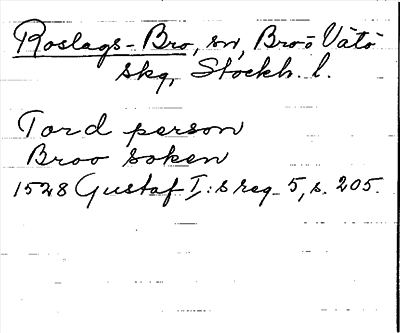 Roslags-Bro, sn, Bro o Vätö
skg, Stockh. l.
Tord person
Broo soken
1528 Gustaf I:s reg 5, s. 205.